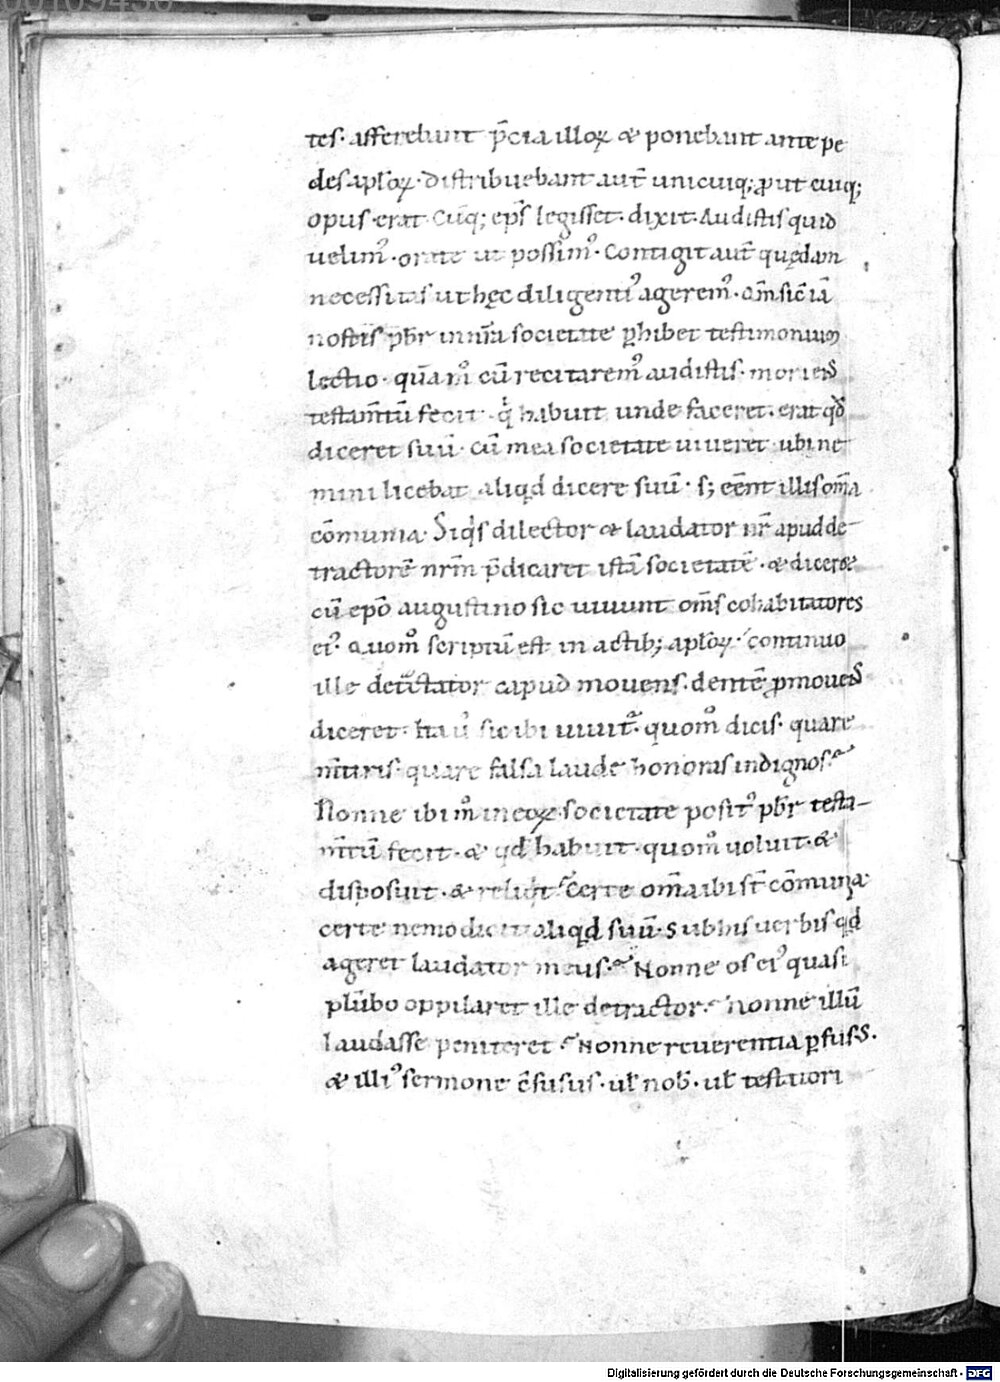 00109430
tes· afferebant p̄cia illoꝝ & ponebant ante pe
des aploꝝ· distribuebant aut̄ unicuiq; ꝓut cuiq;
opus erat· Cūq; ep̄s legisset· dixit· Audistis quid
uelimꝰ· orate ut possimꝰ· Contigit aut̄ quędam
necessitas ut hęc diligentiꝰ ageremꝰ· qm̄ sic̄ iā
nostis pb̄r in nr̄a societate ꝑhibet testimonium
lectio· quā m̊ cū recitaremꝰ audistis· moriens
testam̄tū fecit· q̇ habuit unde faceret· erat qd̄
diceret suū· cū mea societate uiueret· ubi ne
mini licebat aliqd̄ dicere suū· s; eēnt illis om̄a
cōmunia· Siq̇s dilector & laudator nr̄ apud de
tractorē nr̄m p̄dicaret istā societatē· & diceret
cū ep̄o augustino sic uiuunt om̄s cohabitatores
eiꝰ· quom̊ scriptū est in actib; aploꝝ· continuo
ille detractator caput mouens· dentē ꝓmouens
diceret· Ita ū sic ibi uiuit̃· quom̊ dicis· quare
m̄tiris· quare falsa laude honoras indignos·
Nonne ibi m̊ in eoꝝ societate positꝰ pb̄r testa
m̄tū fecit· & qd̄ habuit· quom̊ uoluit· &
disposuit· & reliqt̄· Certe om̄a ibi st̄ cōmunia
certe nemo dicit aliqd̄ suū· Sub his uerbis qd̄
ageret laudator meus· Nonne os eiꝰ quasi
plūbo oppilaret ille detractor· nonne illū
laudasse peniteret· Nonne reuerentia ꝑfusꝰ·
& illiꝰ sermone c̄fusus· ul̄ nob̄· ul̄ testatori
Digitalisierung gefördert durch die Deutsche Forschungsgemeinschaft - DFG